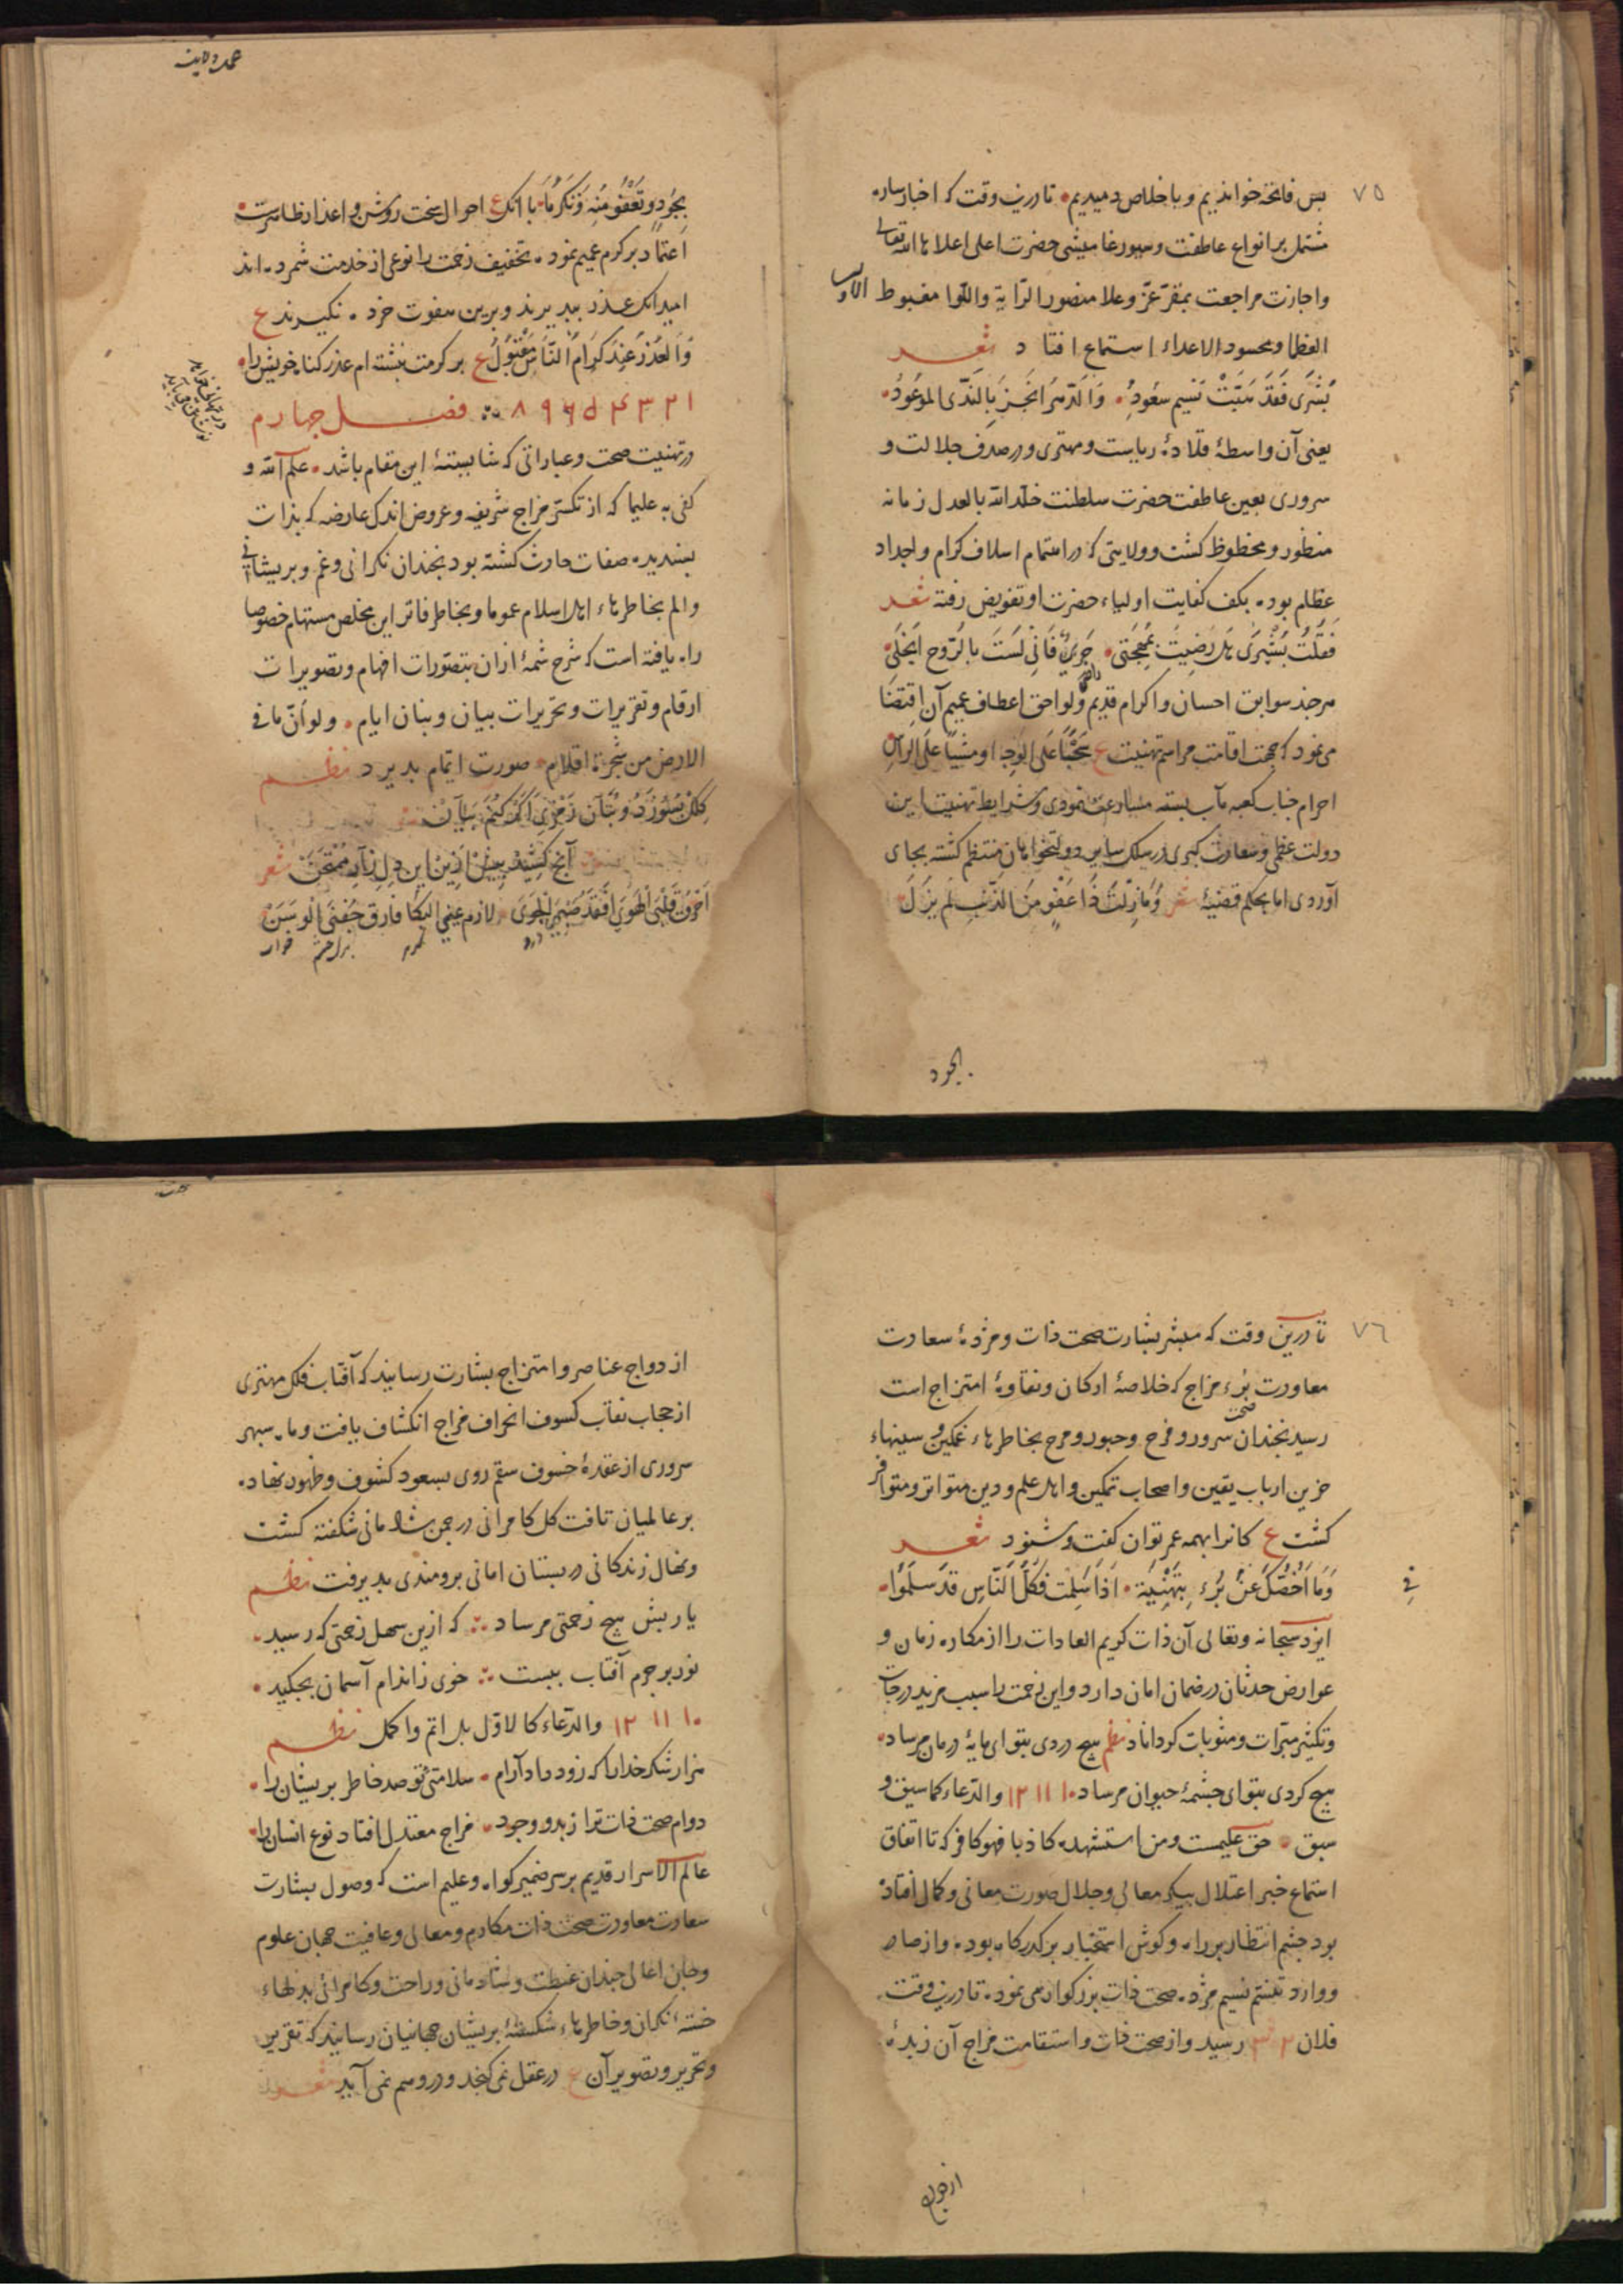 ٧٥
بس فاتحه خوانديم و باخلاص دميديم تا درين وقت كه اخبار ساره
مشتمل بر انواع عاطفت و سيورغاميشى حضرت اعلى اعلاها الله تعالى
واجازت مراجعت بمقر عز وعلا منصور الراية واللوا مغبوط الاوليا
العظا ومحسود الاعداء استماع افتاد شعر
بُشْرَى فَقَدْ هَبَّتْ نَسِيم سعُودِهِ وَالدّهرُ انجَزَ بِالنَّدَى المَوْعُودُ
يعنى آن واسطۀ قلادۀ رياست و مهترى و در صدف جلالت و
سرورى بعين عاطفت حضرت سلطنت خلد الله بالعدل زمانه
منظور و محظوظ كشت و ولايتى كه در اهتمام اسلاف كرام و اجداد
عظام بوده بكف كفايت اولياء حضرت او تفويض رفته شعر
فَقُلتُ بَشِّيرَى هَل رَضِيتَ بِمُهجَتِى فَانِّى لَسْتُ بالرُّوحِ ابخَلُ
هرچند سوابق احسان و اكرام قديم و لواحق اعطاف عميم آن اقتضا
مى نمود كه بجهت اقامت مراسم تهنيت ع سَحْبًا عَلَى الوَجهِ او مشيًا عَلَى الراسِ
احرام جناب كعبه مآب بسته مسارعت نمودى و شرايط تهنيت اين
دولت عظمى و سعادت كبرى در سلك ساير دولتخواهان منتظم كشته بجاى
آوردى اما بحكم قضيۀ شعر وَمَا زِلْتَ ذَا عَفْوٍ مِنَ الذَّنْبِ لَم يزَلْ
تجود
بِجُودٍ وَتَعْفُو مِنْهُ وَتَكَرُّمًا با آنك ع احوال سخت روشن و اعذار ظاهرست
اعتماد بر كرم عميم نموده تخفيف زحمت را نوعى از خدمت شمرده اند
اميد آنك عذر بپذيرند و برين هفوت خرده نكيرند ع
وَالعُذْرُ عِنْدَ كِرَامِ النَّاسِ مَقْبُولُ ع بر كرمت نبشته ام عذر كناه خويش را
١ ٢ ٣ ۴ ۵ ۶ ٩ ٨ فصل چهارم
در تهنيت صحت و عباراتى كه شايستۀ اين مقام باشد علم الله و
كفى به عليما كه از تكسّر مزاج شريف و عروض اندك عارضه كه بذات
پسنديده صفات حادث كشته بود نچندان نكرانى و غم و پريشانى
و الم بخاطرهاء اهل اسلام عموما و بخاطر فاتر اين مخلص مستهام خصوصا
راه يافته است كه شرح شمۀ از ان بتصورات افهام و تصويرات
ارقام و تقريرات و تحريرات بيان و بنان ايام ولو أنّ ما فى
الارض من شجرة اقلام صورت اتمام پذيرد نظم
كِلك بسُوزَد وبَنَان زمزى اكر كُنم بيان
آنچ كشِيد پيش ازين اين دلِ زارِ مُمْتَحَن شعر
اَحْرَقَ قَلْبَى الهَوَى اَفْقَدَ صَبْرِىَ الجوَى لازم عينى البكا فارق جفنى الوسن
٧٦
تا درين وقت كه مبشر بشارت صحت ذات و مژدۀ سعادت
معاودت بُرء مزاج كه خلاصۀ اركان و نقاوۀ امتزاج است
رسيد نچندان سرور و فرح و حبور و مرح بخاطرهاء غمكين و سينهاء
حزين ارباب يقين و اصحاب تمكين و اهل علم و دين متواتر و متوافر
كشت ع كانرا بهمه عمر توان كفت و شنود شعر
وَمَا اَخُصُّكَ عَنْ بُرْءٍ بِتَهْنِيَةٍ اِذَا سَلِمْتَ فَكُلُّ النَّاسِ قَد سَلِمُوا
فى
ايزد سبحانه و تعالى آن ذات كريم العادات را از مكاره زمان و
عوارض حدثان در ضمان امان دارد و اين زحمت را سبب مزيد درجات
و تكثير مبرّات و مثوبات كرداناد نظم هيچ دردى بتو اى مايۀ درمان مرساد
هيچ كردى بتو اى چشمۀ حيوان مرساد ١٠ ١١ ١٢ والدعاء كما سيق و
سبق حق عليمست ومن استشهده كاذبا فهو كافر كه تا اتفاق
استماع خبر اعتلال پيكر معالى و جلال صورت معانى و كمال افتاده
بود چشم انتظار بر راه و كوش استخبار بر كذركاه بوده و از صادر
و وارد تنسّم نسيم مژده صحت ذات بزركوار مى نمود تا درين وقت
فلان ٢ ٣ رسيد و از صحت ذات و استقامت مزاج آن زبدۀ
ازدواج
ازدواج عناصر و امتزاج بشارت رسانيد كه آفتاب فلك مهترى
از حجاب نقاب كسوف انحراف مزاج انكشاف يافت و ماه سپهر
سرورى از عقدۀ خسوف سقم روى بسعود كشوف و ظهور نهاده
بر عالميان تافت كل كامرانى در چمن شادمانى شكفته كشت
و نهال زندكانى در بستان امانى برومندى پذيرفت نظم
يا ربش هيچ زحمتى مرساد كه ازين سهل زحمتى كه رسيد
نور بر جرم آفتاب ببست خوى ز اندام آسمان بچكيد
١٠ ١١ ١٢ والدعاء كالاول بل اتم و اكمل نظم
هزار شكر خدا را كه زود داد آرام سلامتى تو صد خاطر پريشان را
دوام صحت ذات ترا زبدو وجود مزاج معتدل افتاد نوع انسان را
عالم الاسرار قديم بر سر ضمير كواه و عليم است كه وصول بشارت
سعادت معاودت صحت ذات مكارم و معالى و عافيت جهان علوم
و جان اعالى چندان غبطت و شادمانى و راحت و كامرانى بدلهاء
خستۀ نكران و خاطرهاء شكستۀ پريشان جهانيان رسانيد كه تقرير
و تحرير و تصوير آن ع در عقل نمى كنجد و در وهم نمى آيد شعر